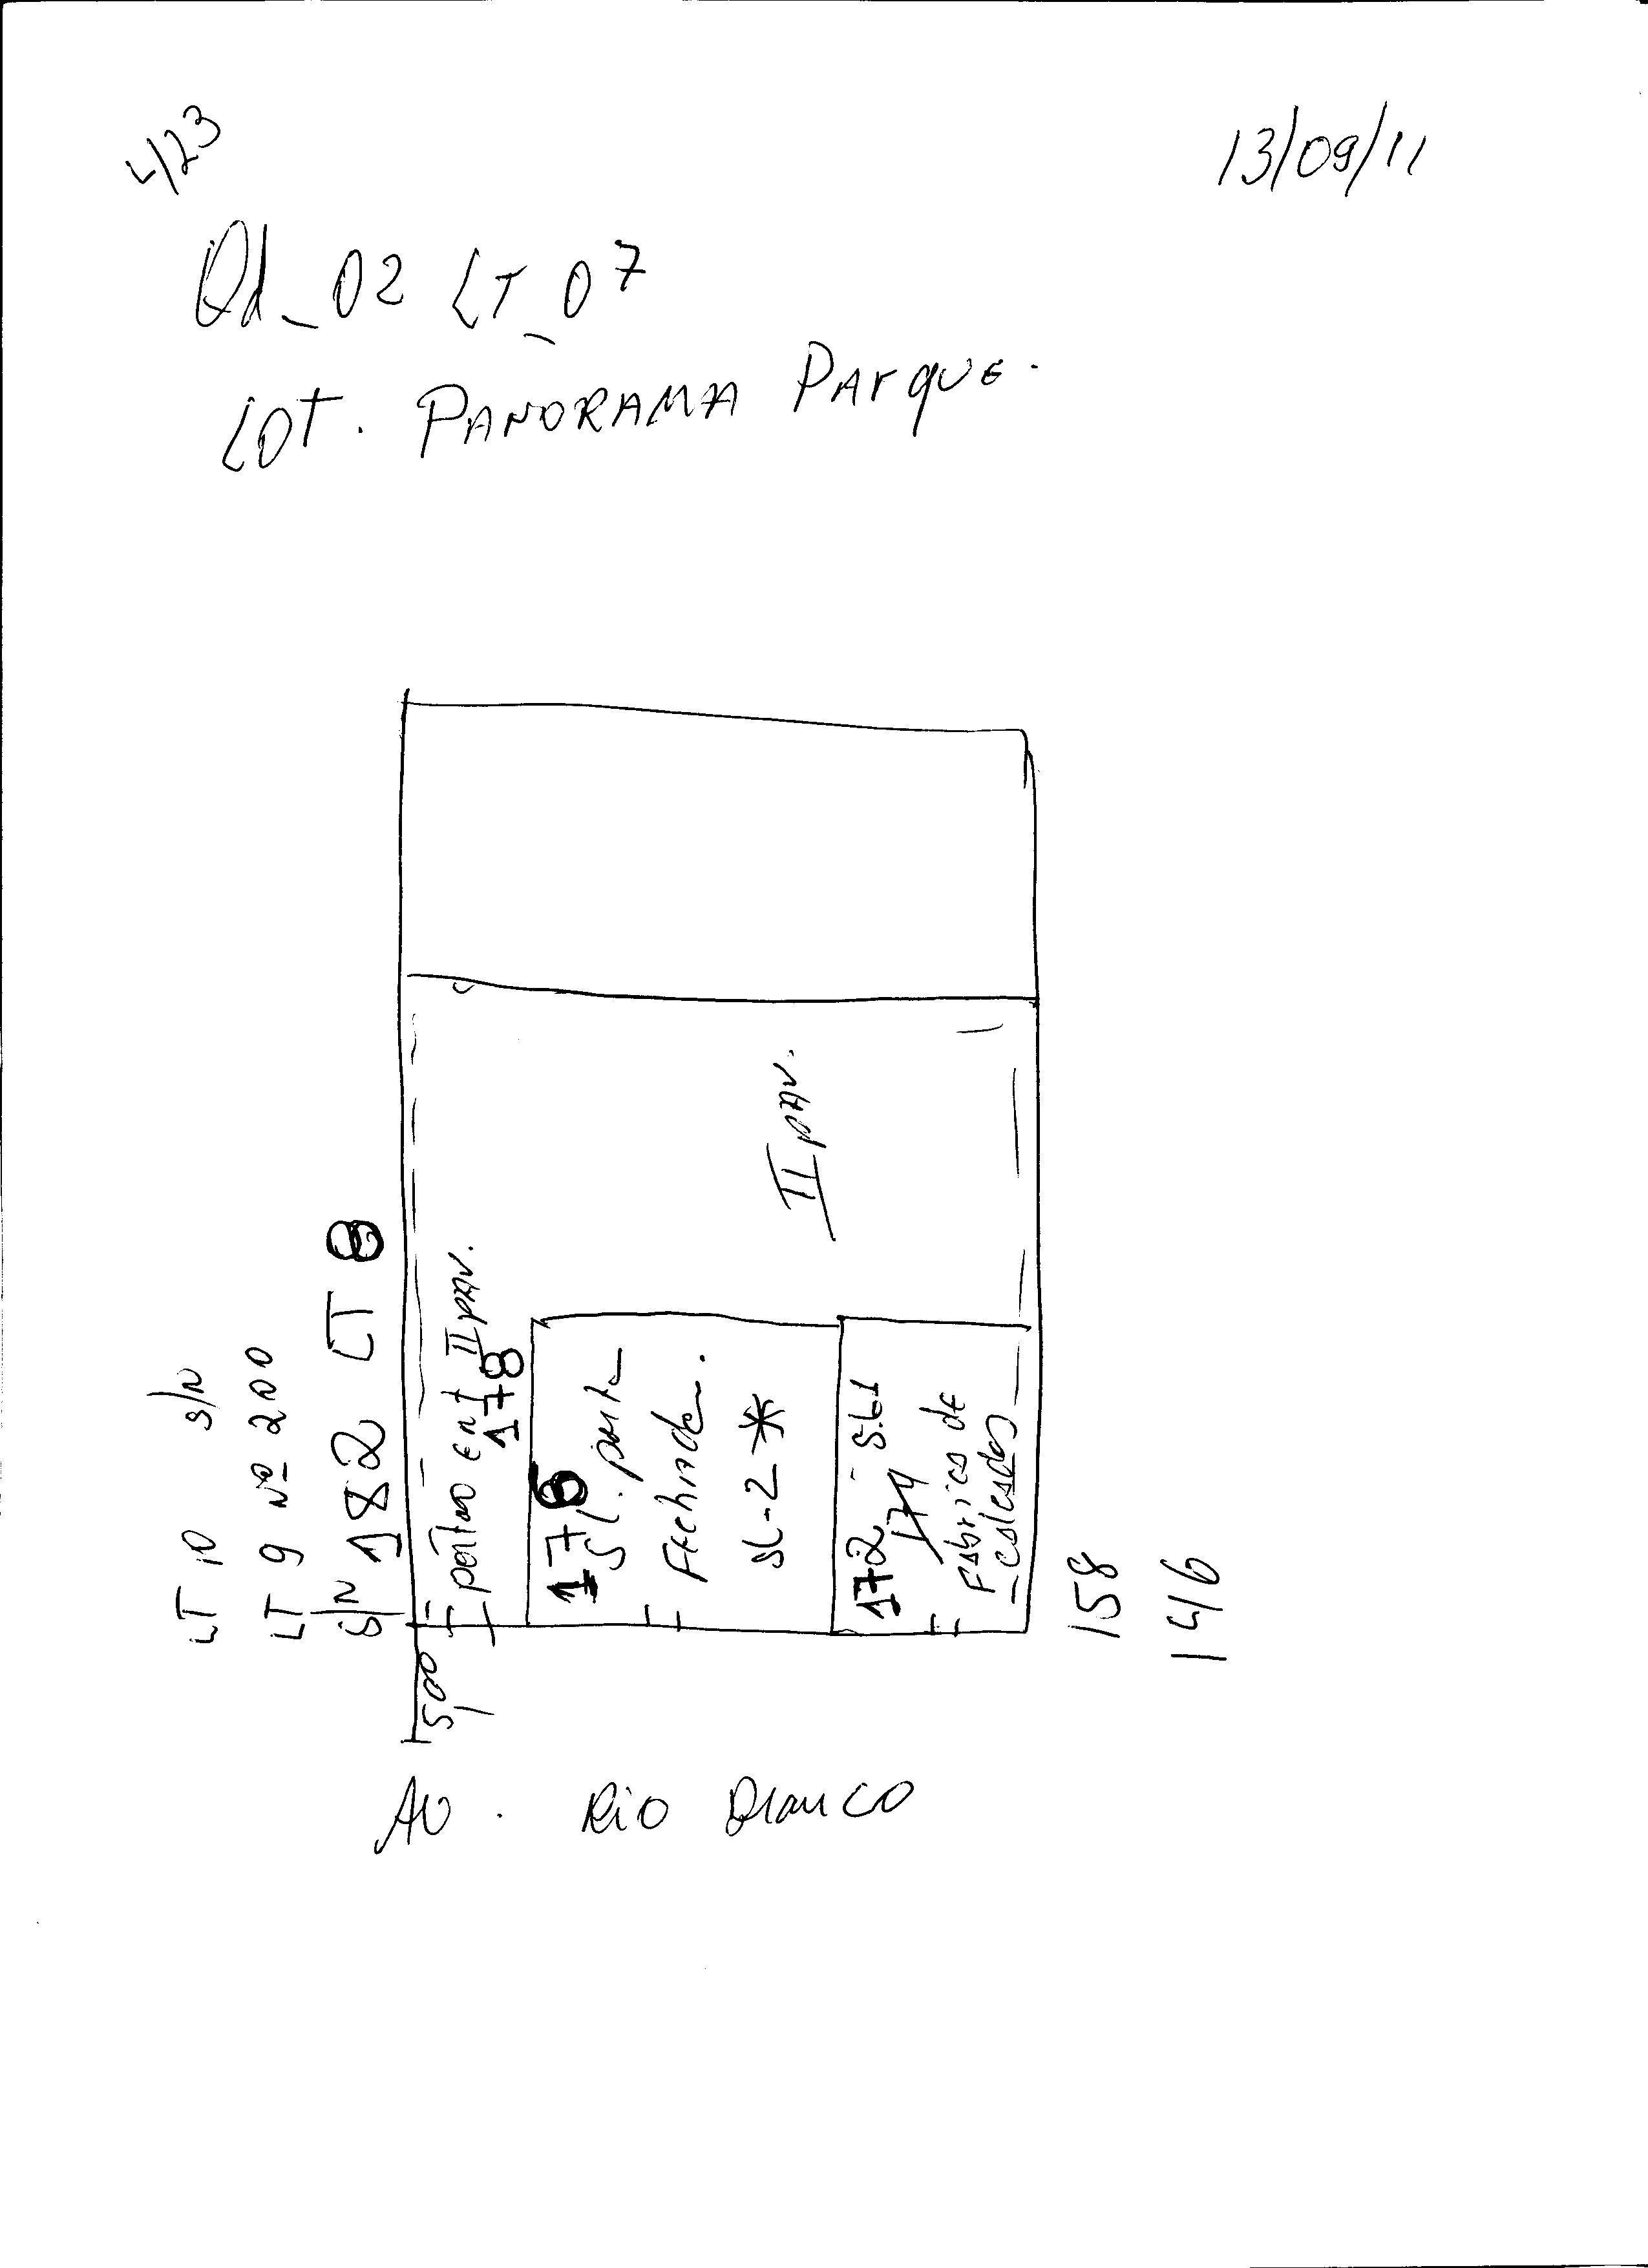 4/23
13/09/11
Qd_02 LT_07
LOT. PANORAMA PArquE.
LT 10 S/N
LT 9 Nº 200
S/N 182 LT 8
portão Ent II pav.
178
176
Sl. porta
Fechada.
SL-2 *
172 - SL1
174
Fabrica de
II pav.
158
146
5,00
AV. Rio Branco